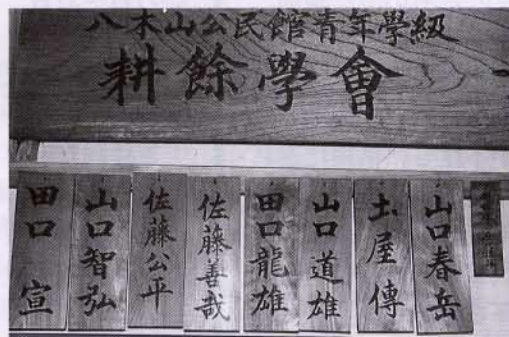 八木山公民館青年學級
耕餘學會
山口春岳
土屋傳
山口道雄
田口龍雄
佐藤善哉
佐藤公平
山口智弘
田口宣